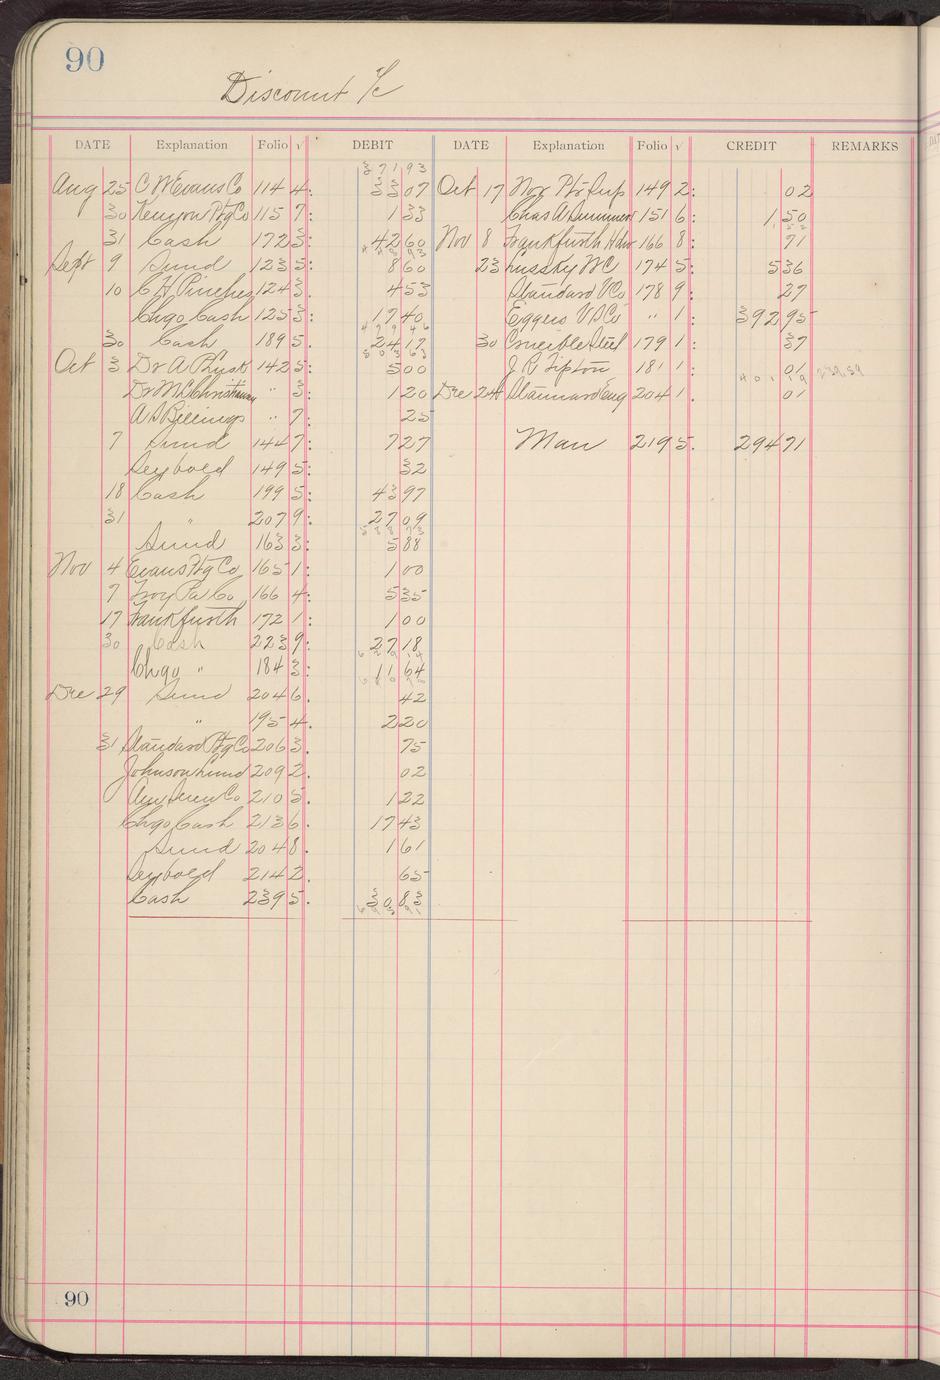 90
Discount a/c
DATE Explanation Folio √ DEBIT DATE Explanation Folio √ CREDIT REMARKS
37193
Aug 25 C W Evans Co 114 4: 3307 Oct 17 Nor Ptr Sup 149 2: 02
30 Kenyon Ptg Co 115 7: 133 Chas A Summer 151 6: 150
31 Cash 172 3: 4260 Nov 8 Frankfurth Hdw 166 8: 71
Sept 9 Sund 123 5: 860 23 Lussky WC 174 5: 536
10 C H Pinches 124 3. 453 Standard V Co 178 9: 27
Chgo Cash 125 3: 1740 Eggers V S Co " 1: 39295
30 Cash 189 5. 2417 30 Crucible Steel 179 1: 37
Oct 3 Dr A P Lusk 142 5: 500 J R Tipton 181 1: 01
Dr M C Christianay " 3: 120 Dec 24 Stannard Eng 204 1. 01
A D Billings " 7: 25
7 Sund 144 7: 727 Man 219 5. 29471
Seybold 149 5: 32
18 Cash 199 5: 4397
31 " 207 9: 2709
Sund 163 3: 588
Nov 4 Evans Ptg Co 165 1: 100
7 Troy Pa Co 166 4: 535
17 Frankfurth 172 1: 100
30 Cash 223 9: 2718
Chgo " 184 3: 1164
Dec 29 Sund 204 6. 42
" 195 4. 220
31 Standard Ptg Co 206 3. 75
Johnson Lund 209 2. 02
Am Scren Co 210 5. 122
Chgo Cash 213 6. 1743
Sund 204 8. 161
Seybold 214 2. 65
Cash 239 5. 3083
90